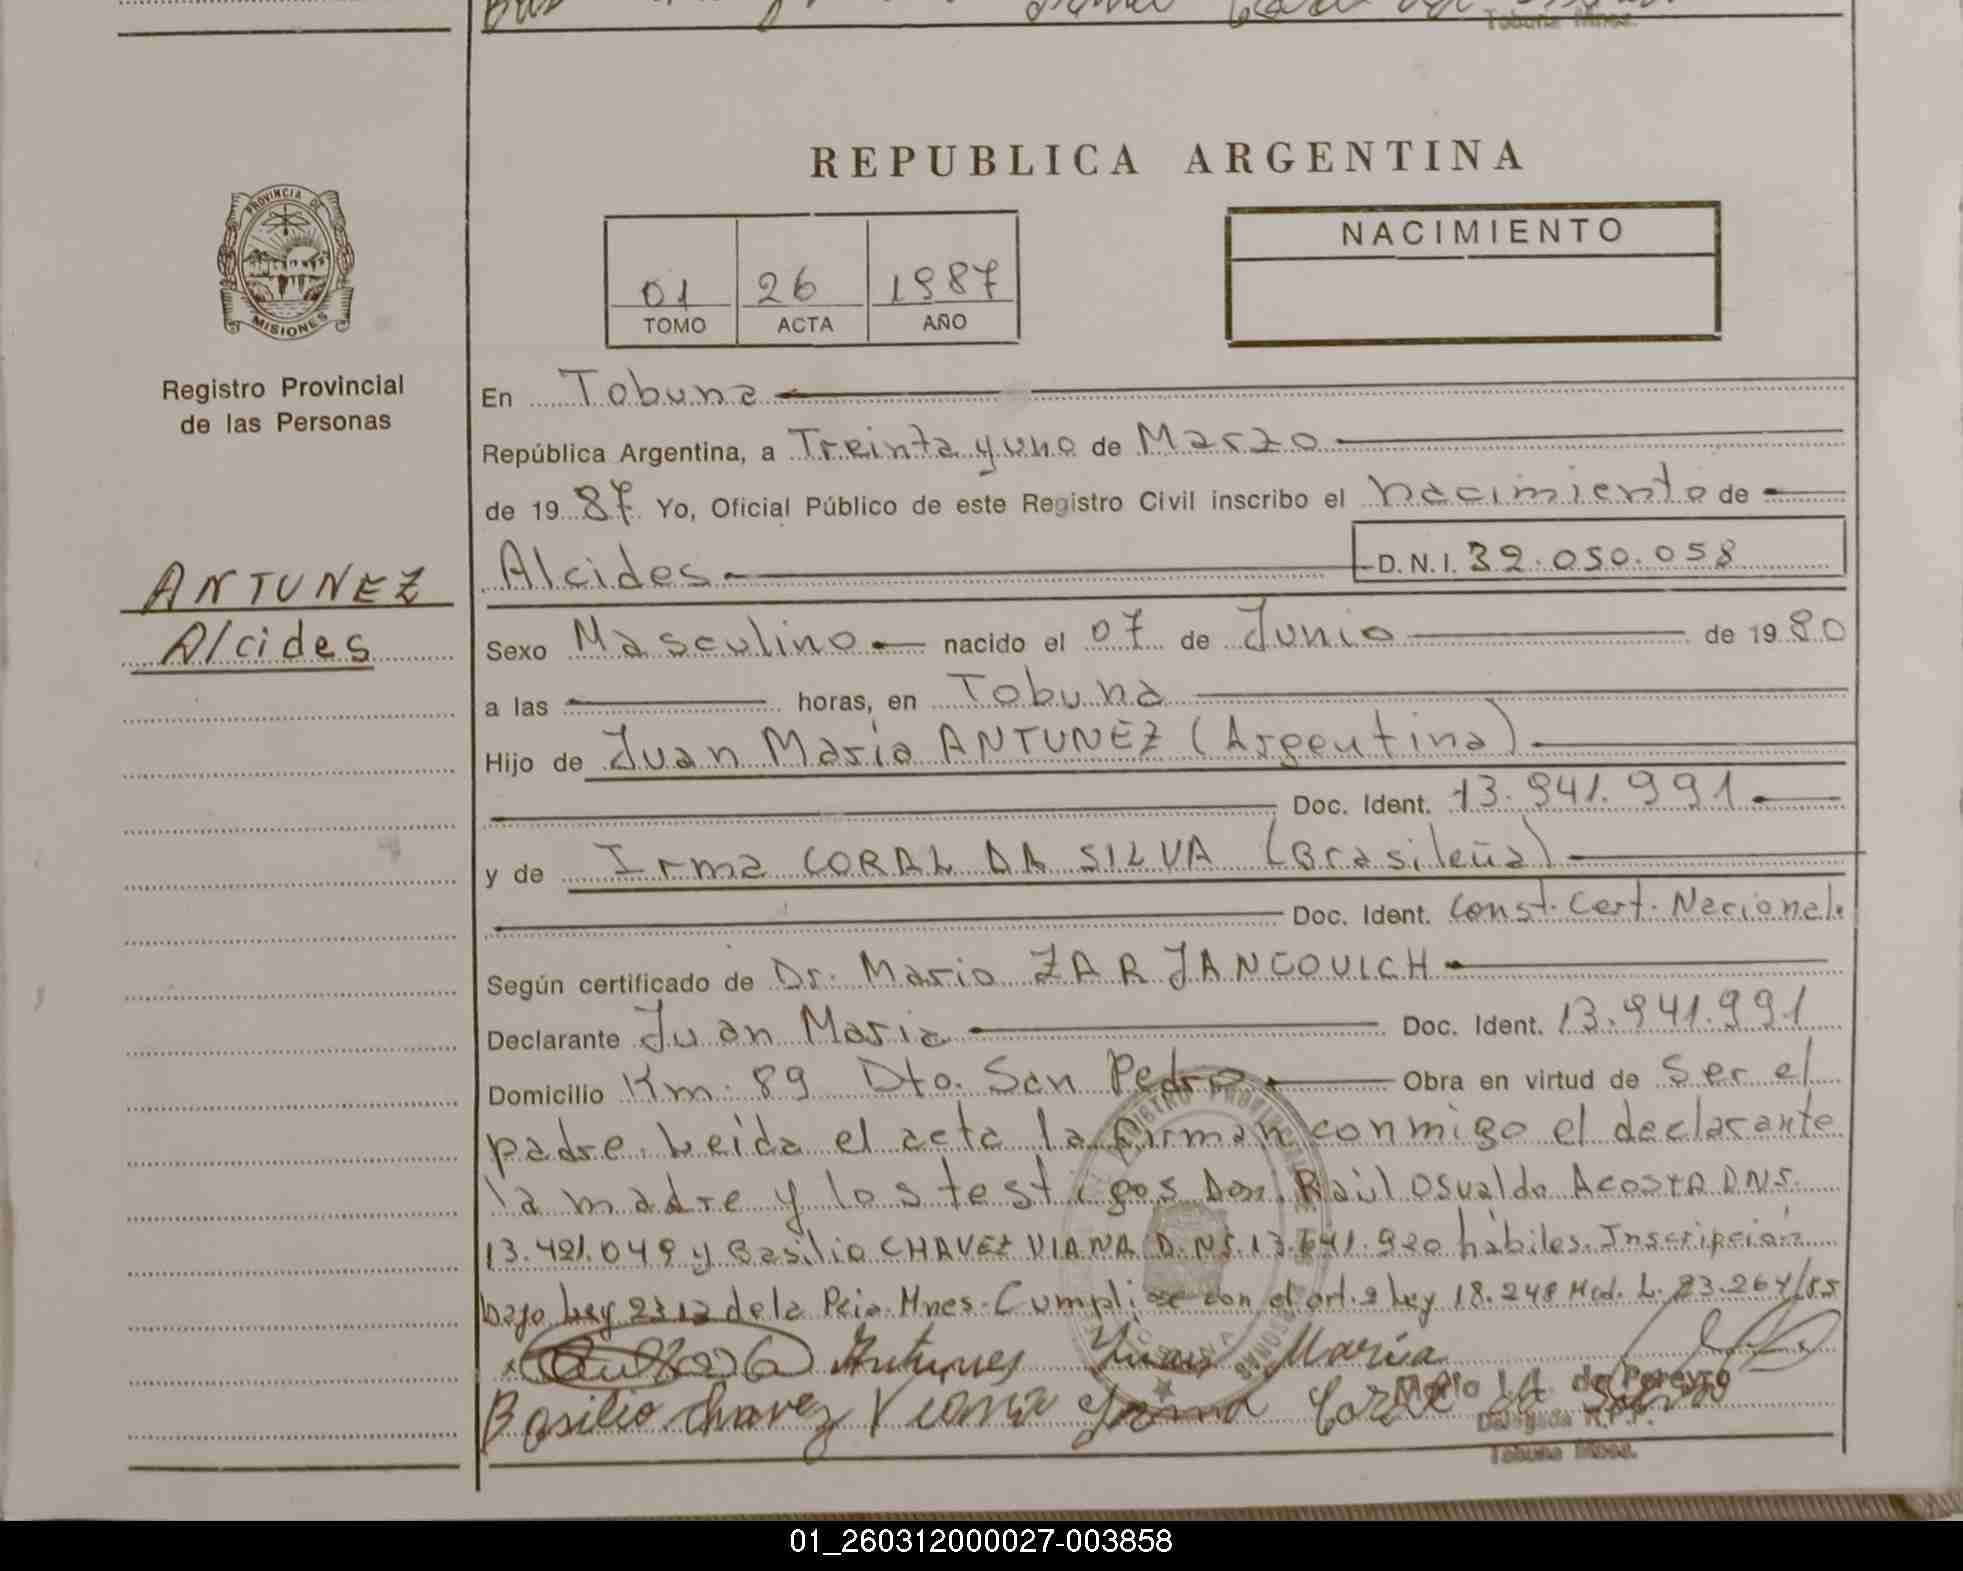 Tobuna Mnes.
REPUBLICA ARGENTINA
PROVINCIA DE
MISIONES
Registro Provincial
de las Personas
01 26 1987
TOMO ACTA AÑO
NACIMIENTO
En Tobuna
República Argentina, a Treinta y uno de Marzo
de 1987 Yo, Oficial Público de este Registro Civil inscribo el nacimiento de
Alcides D.N.I. 32.050.058
ANTUNEZ
Alcides
Sexo Masculino nacido el 07 de Junio de 1980
a las horas, en Tobuna
Hijo de Juan Maria ANTUNEZ (Argentina)
Doc. Ident. 13.941.991
y de Irma CORAL DA SILVA (Brasileña)
Doc. Ident. Const. Cert. Nacional.
Según certificado de Dr. Mario ZAR JANCOVICH
Declarante Juan Maria Doc. Ident. 13.941.991
Domicilio Km. 89 Dto. San Pedro Obra en virtud de Ser el
padre. Leida el acta la firman conmigo el declarante
la madre y los testigos Don Raúl Osvaldo ACOSTA DNI.
13.421.049 y Basilio CHAVEZ VIANA D.NI. 13.841.920 hábiles. Inscripción
bajo Ley 2312 de la Pcia. Mnes. Cumpli se con el art. 2 Ley 18.248 Mod. L. 23.264/85
Antunes Juan María
Basilio Chavez Viana Irma Coral da Silva
de Pereyra
Delegada R.P.P.
Tobuna Mnes.
01_260312000027-003858